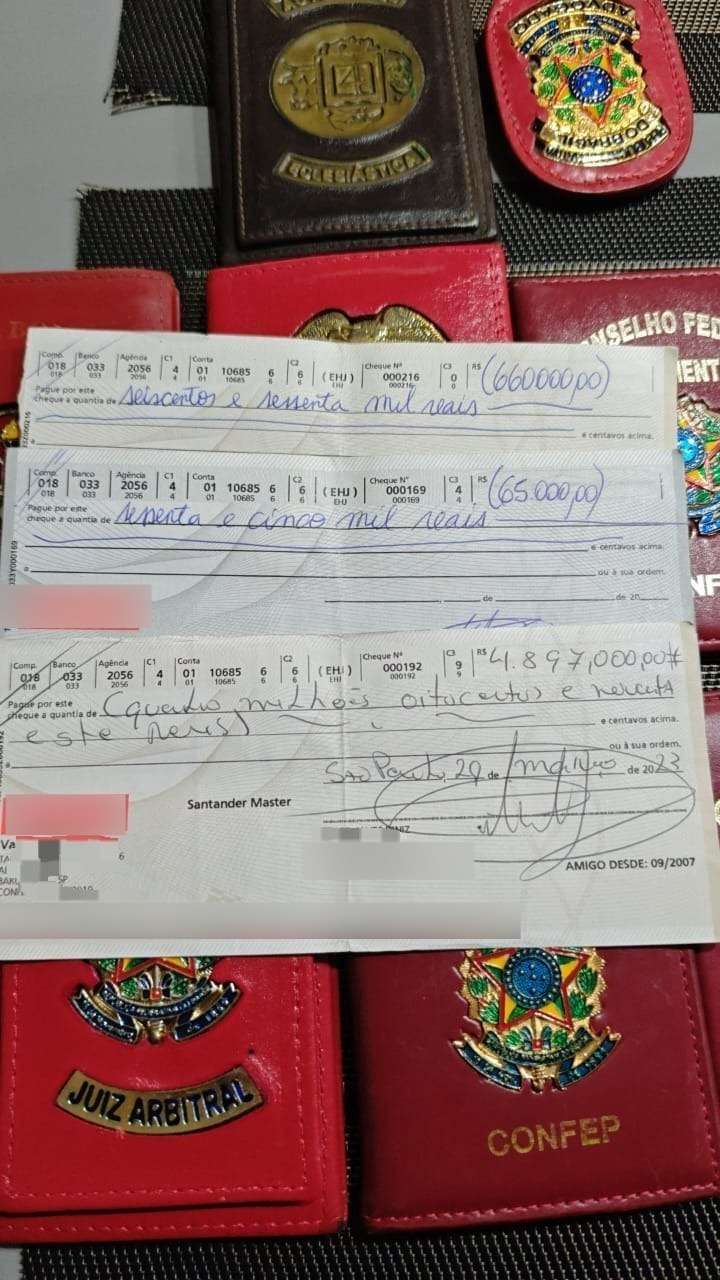 ECLESIÁSTICA
ADVOGADO
DO BRASIL
CONSELHO FED
MENT
Comp. Banco Agência C1 Conta C2 Cheque Nº C3 R$
018 033 2056 4 01 10685 6 6 (EHJ) 000216 0 (660000,00)
018 2056 4 01 10685 6 6 EHJ 000216 0
Pague por este
cheque a quantia de seiscentos e sessenta mil reais
e centavos acima.
a
Comp. Banco Agência C1 Conta C2 Cheque Nº C3 R$
018 033 2056 4 01 10685 6 6 (EHJ) 000169 4 (65.000,00)
018 033 2056 4 01 10685 6 6 EHJ 000169 4
Pague por este
cheque a quantia de sessenta e cinco mil reais
e centavos acima.
a ou à sua ordem.
de de 20
033Y000169
Comp. Banco Agência C1 Conta C2 Cheque Nº C3 R$
018 033 2056 4 01 10685 6 6 (EHJ) 000192 9 4.897,000,00#
018 033 2056 4 01 10685 6 6 EHJ 000192 9
Pague por este
cheque a quantia de (quatro milhões oitocentos e noventa
e centavos acima.
e sete reais)
a ou à sua ordem.
São Paulo 20 de março de 2023
Santander Master
Va
6
SP
AMIGO DESDE: 09/2007
JUIZ ARBITRAL
CONFEP